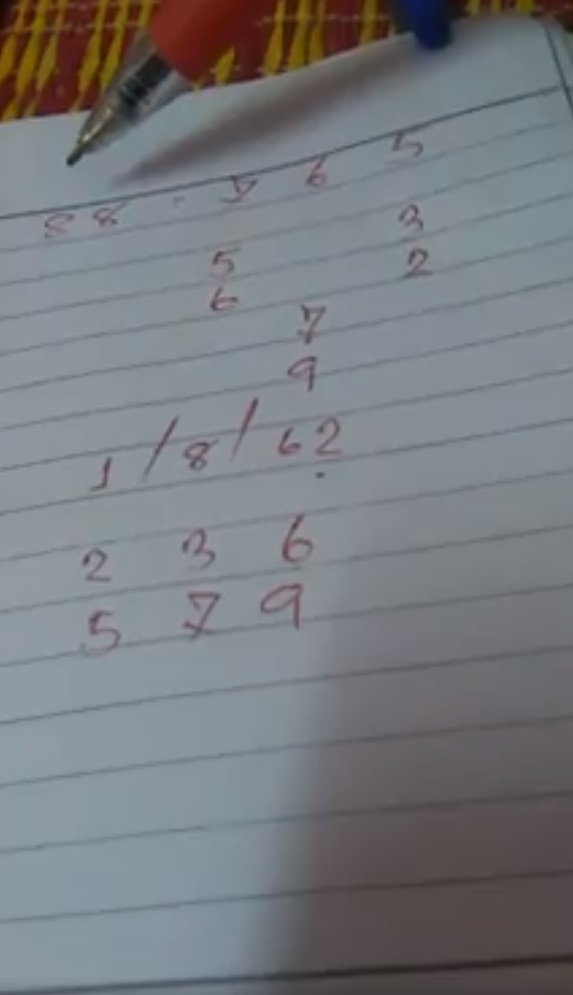 88 . 7 6 5
3
5 2
6
7
9
1/8/62
2 3 6
5 7 9